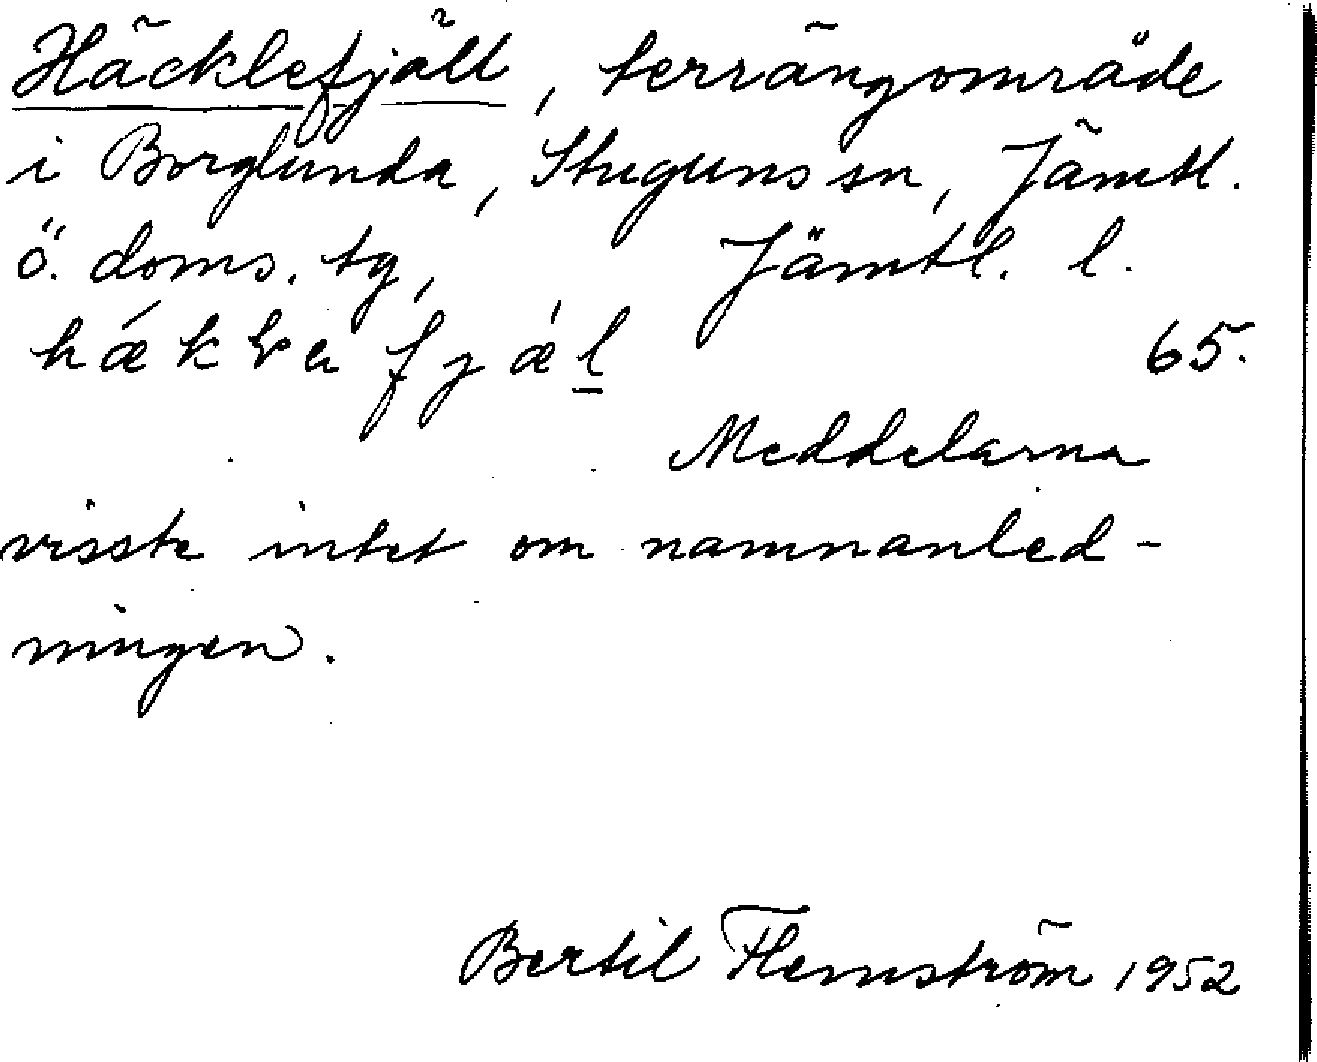 Häcklefjäll, terrängområde
i Borglunda, Stuguns sn, Jämtl.
ö. doms. tg, Jämtl. l.
65.
Meddelarna
visste intet om namnanled-
ningen.
Bertil Flemström 1952